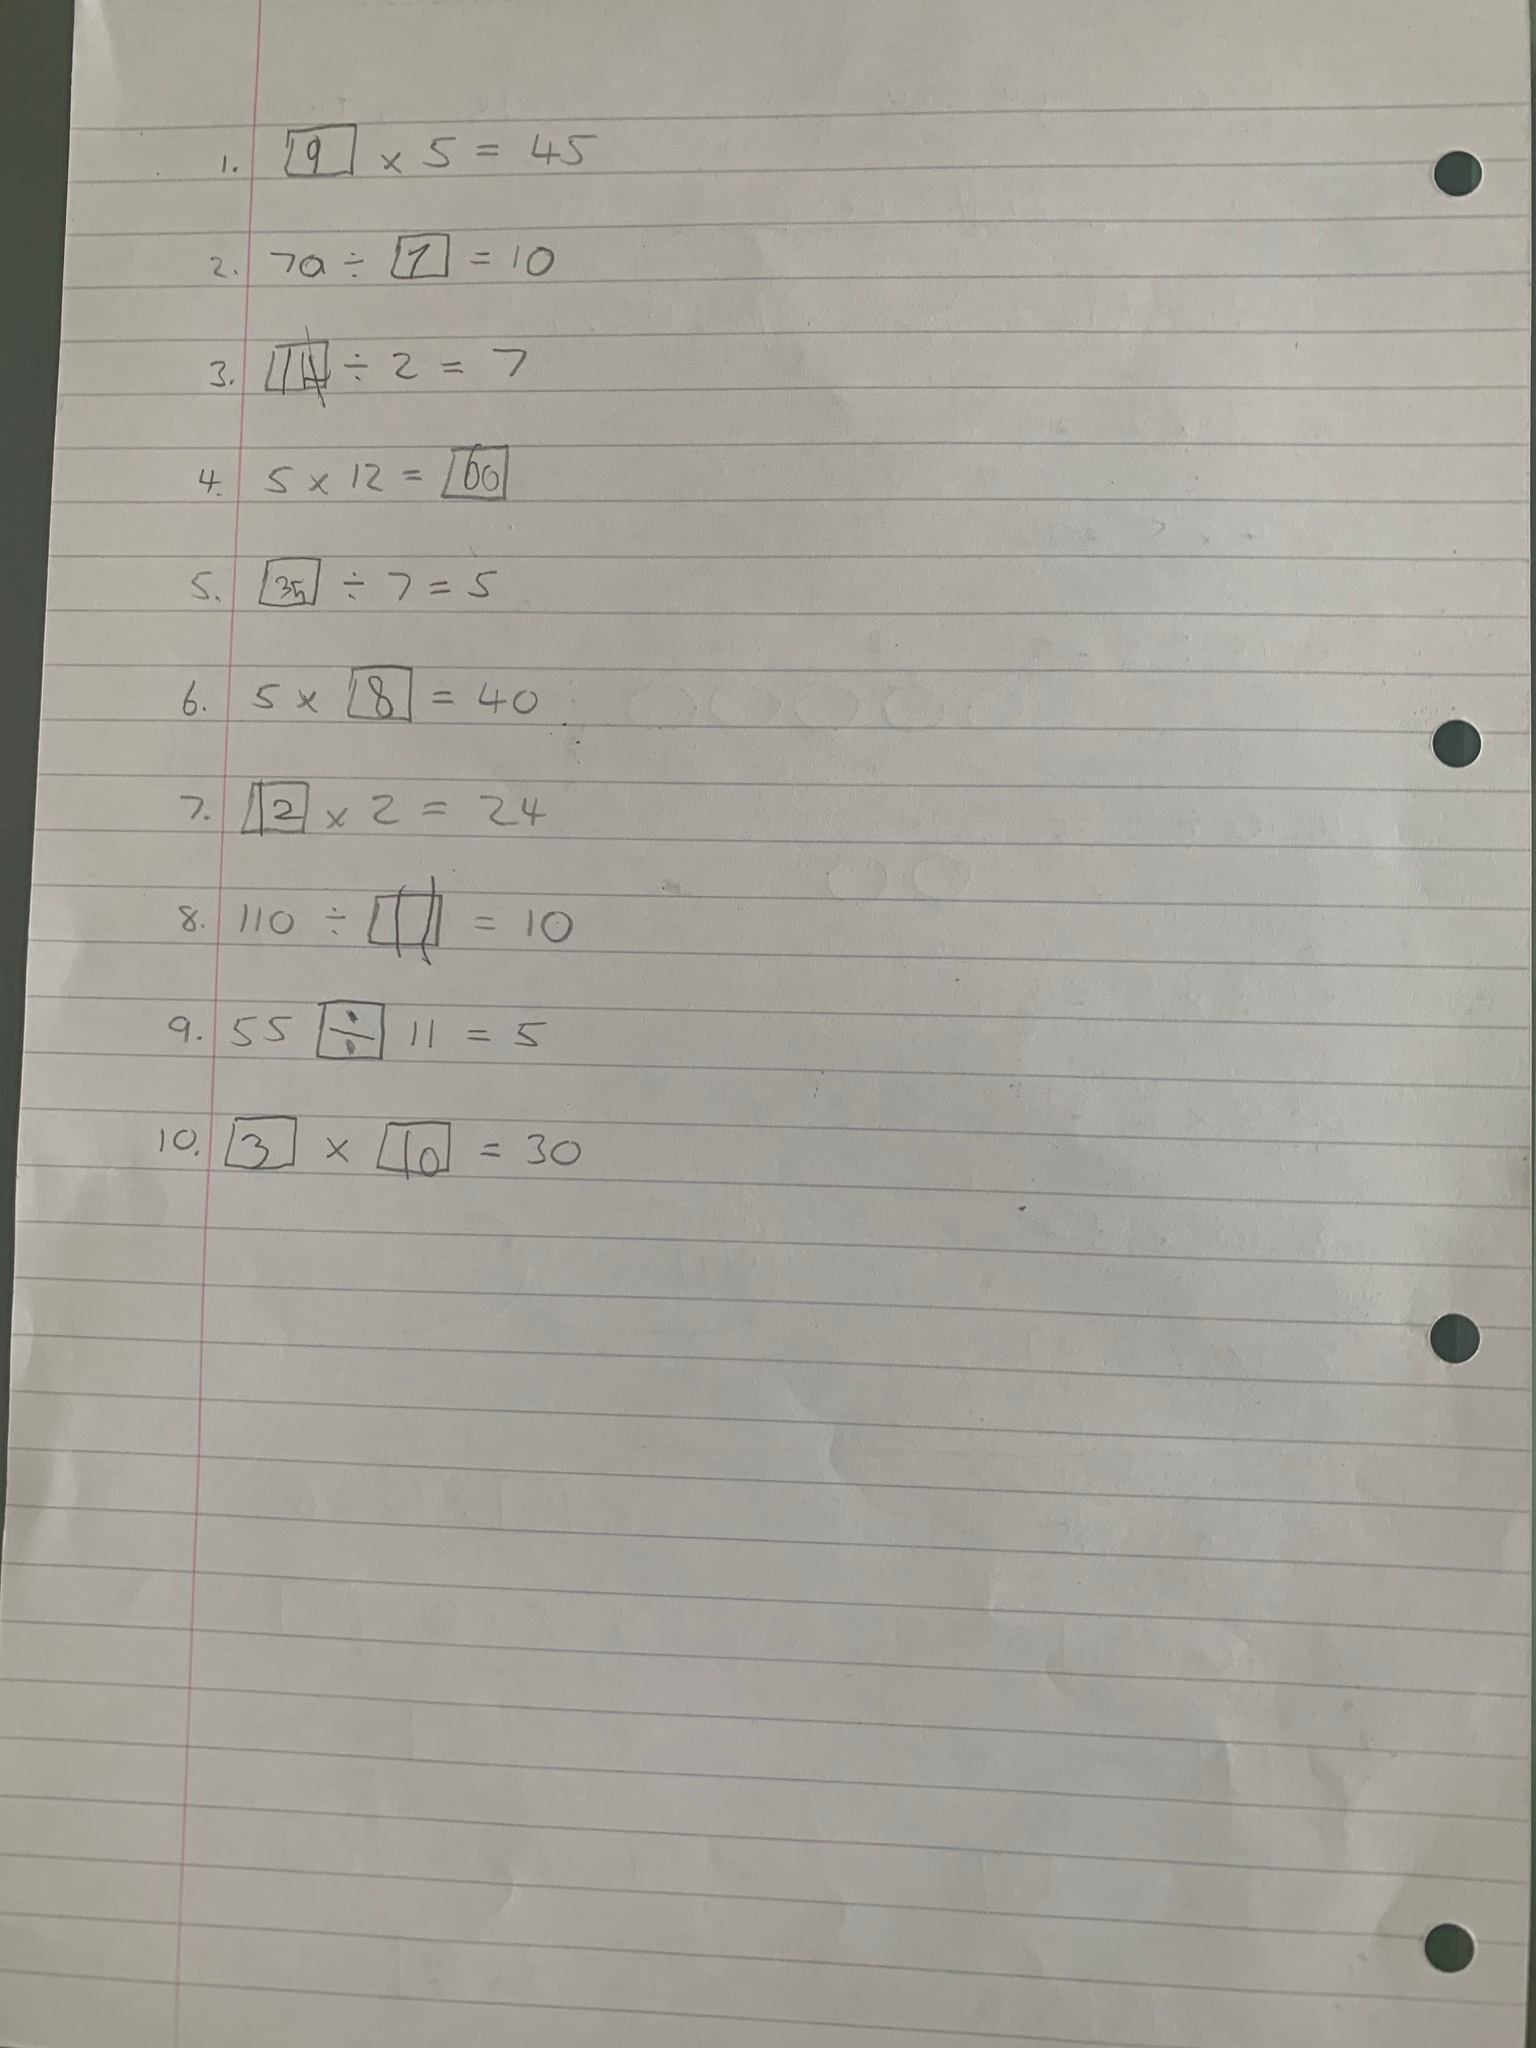 1. 9 × 5 = 45
2. 70 ÷ 7 = 10
3. 14 ÷ 2 = 7
4. 5 × 12 = 60
5. 35 ÷ 7 = 5
6. 5 × 8 = 40
7. 12 × 2 = 24
8. 110 ÷ 11 = 10
9. 55 ÷ 11 = 5
10. 3 × 10 = 30